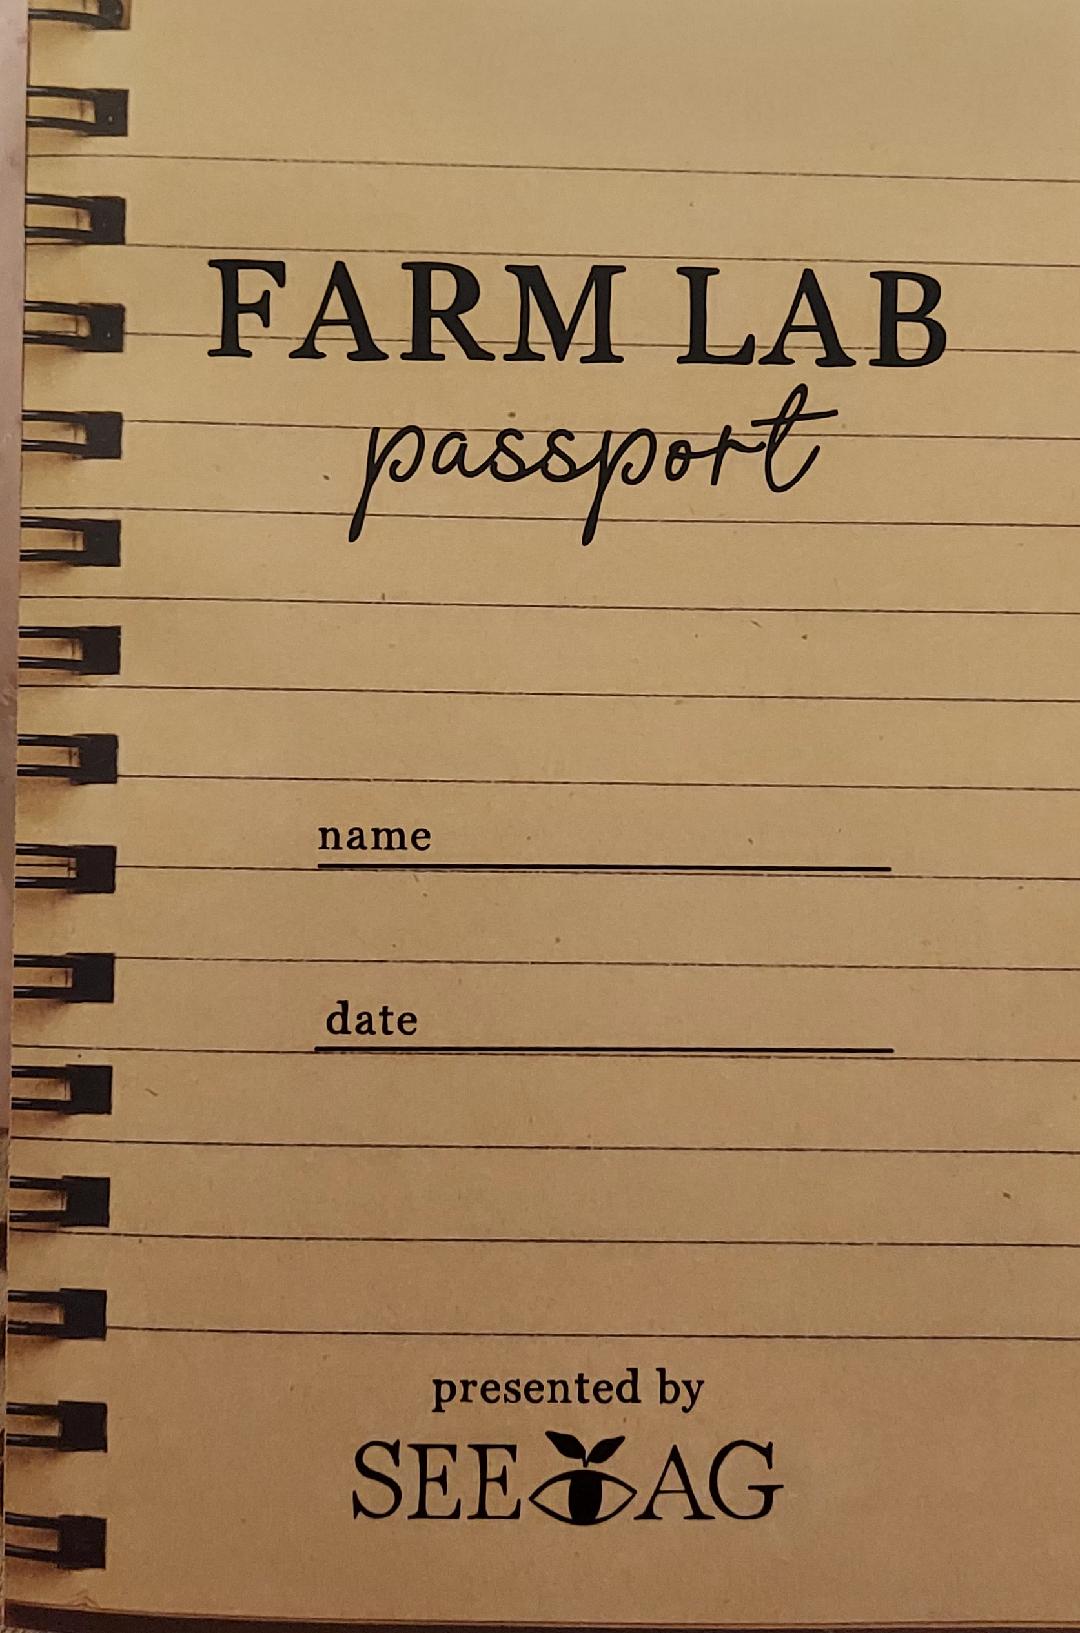 FARM LAB
passport
name
date
presented by
SEE AG